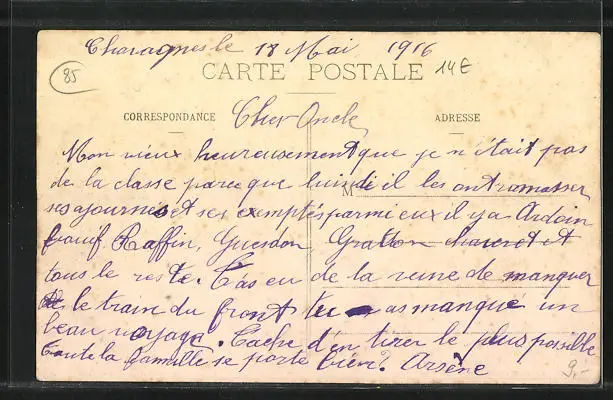 Chavagnes le 18 Mai 1916
85
CARTE POSTALE
14 E
CORRESPONDANCE
Cher Oncle
ADRESSE
Mon vieux heureusement que je n'était pas
de la classe parce que lundi il les ont ramasser
M
ses ajournés et ses exemptés parmi eux il y a Ardoin
Raffin, Guesdon, Gratton et
tous le reste. T'as eu de la veine de manquer
le train du front tu as manqué un
beau voyage. Tache d'en tirer le plus possible
Toute la famille se porte bien. Arsène
9.-